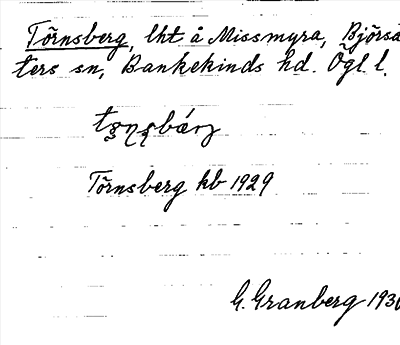 Törnsberg, lht å Missmyra, Björsä
ters sn, Bankekinds hd. Ögl l.
Törnsberg kb 1929
G. Granberg 193